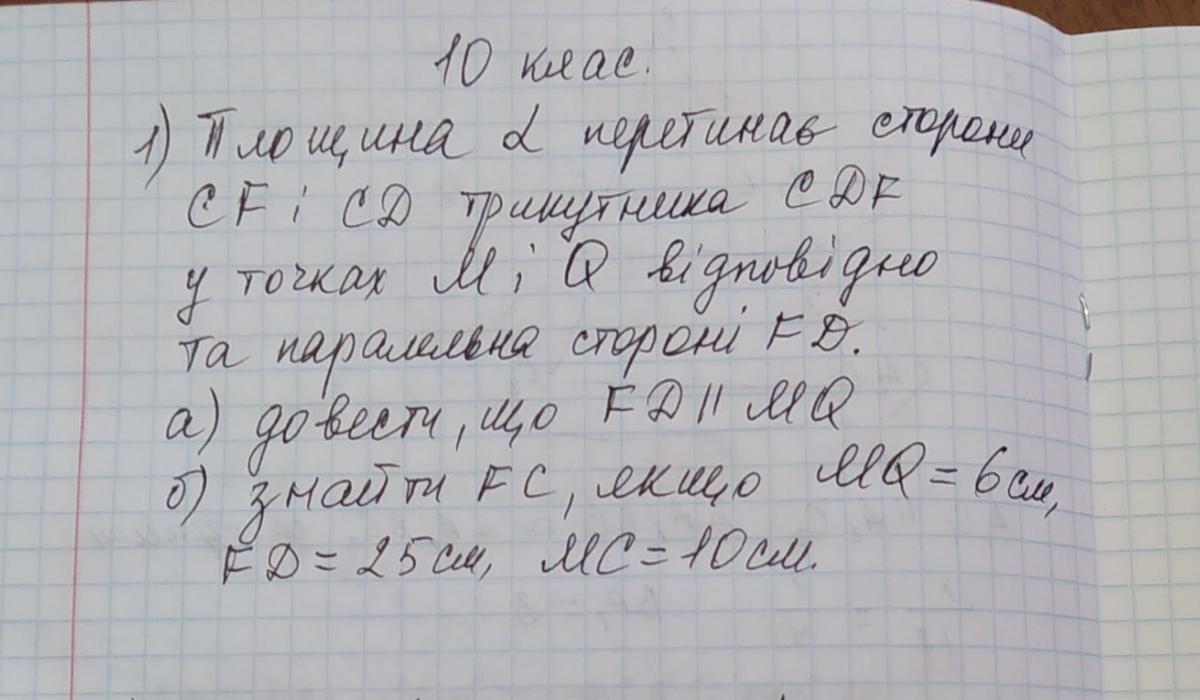 10 клас.
1) Площина α перетинає сторони
CF і CD трикутника CDF
у точках M і Q відповідно
та паралельна стороні FD.
а) довести, що FD || MQ
б) знайти FC, якщо MQ = 6 см,
FD = 25 см, MC = 10 см.